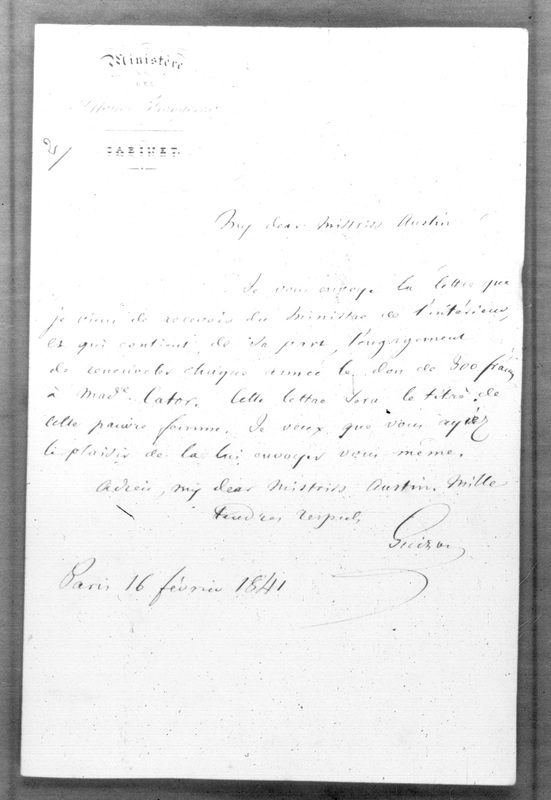 Ministère
DES
Affaires Étrangères
CABINET.
My dear Mistriss Austin
Je vous envoye la lettre que
je viens de recevoir du Ministre de l'intérieur,
et qui contient, de sa part, l'engagement
de renouveler chaque année le don de 300 francs
à Made. Cator. Cette lettre sera le titre de
cette pauvre femme. Je veux que vous ayiez
le plaisir de la lui envoyer vous même.
Adieu, my dear Mistriss Austin. Mille
tendres respects
Guizot
Paris 16 février 1841